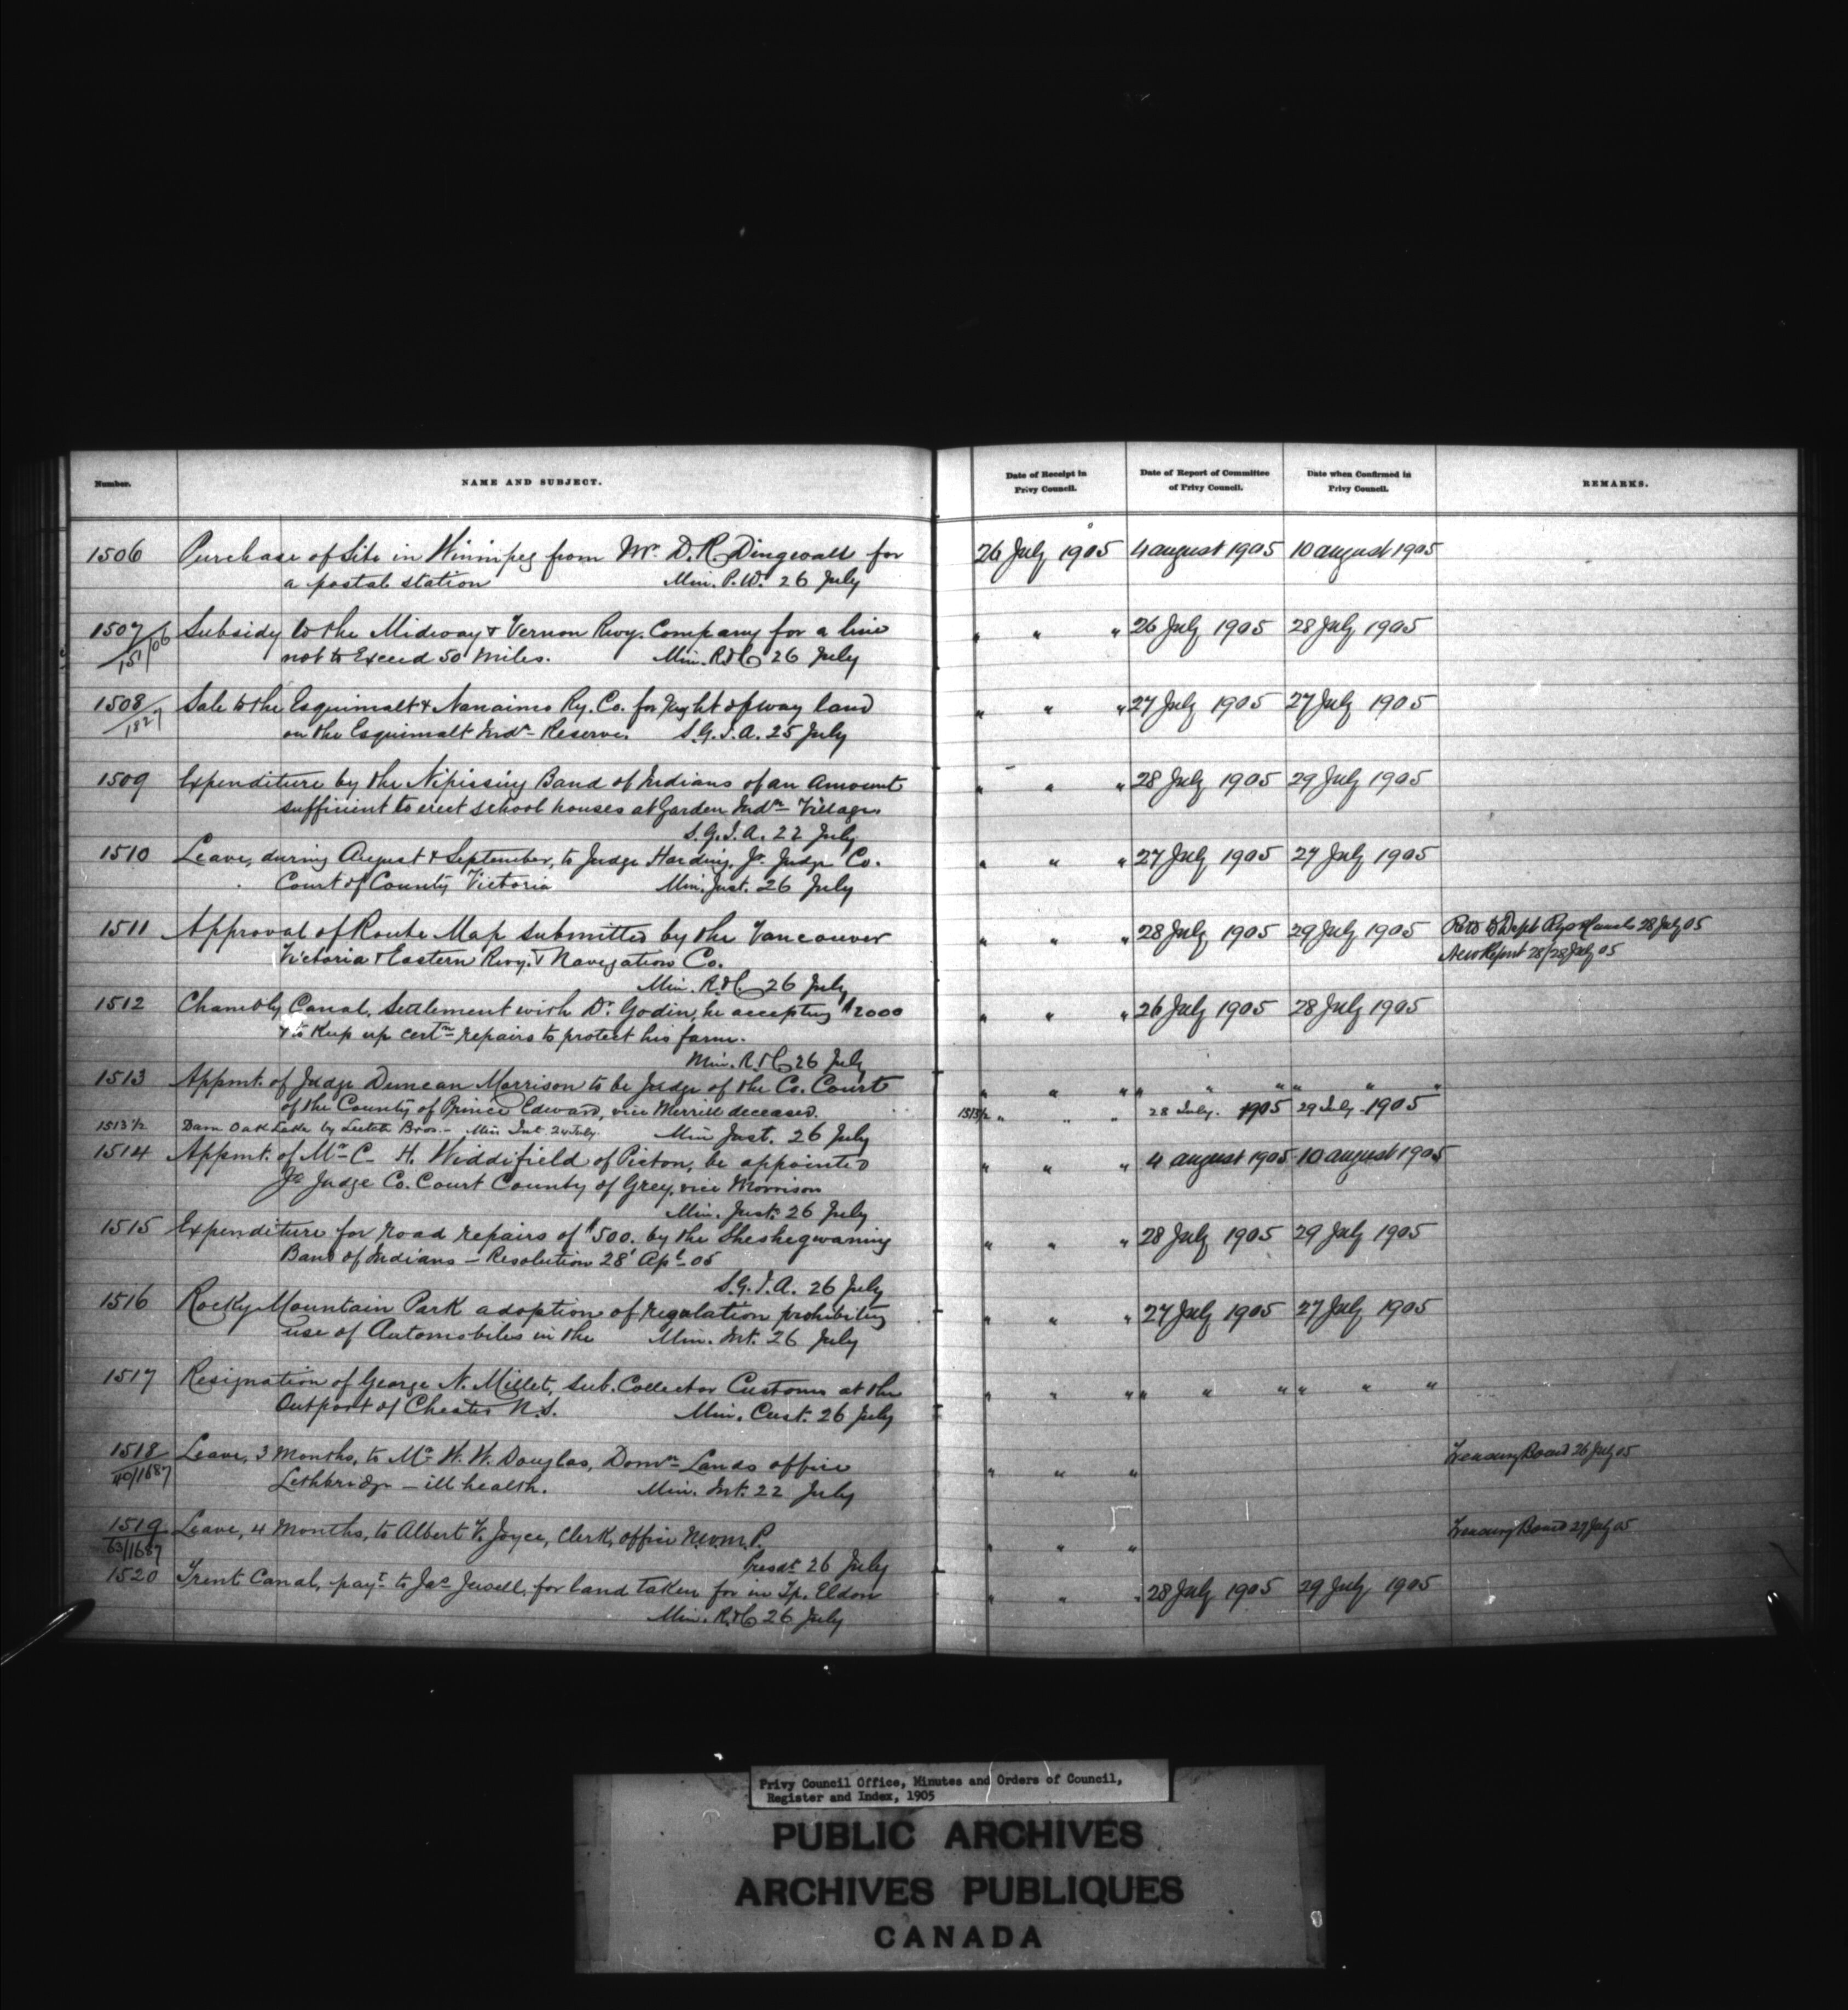 Number. NAME AND SUBJECT. Date of Receipt in Privy Council. Date of Report of Committee of Privy Council. Date when Confirmed in Privy Council. REMARKS.
1506 Purchase of Site in Winnipeg from Mr. D. R. Dingwall for 26 July 1905 4 august 1905 10 august 1905
a postal station Min. P.W. 26 July
1507 Subsidy to the Midway & Vernon Rwy. Company for a line " " " 26 July 1905 28 July 1905
151/06 not to Exceed 50 Miles. Min. R&C 26 July
1508 Sale to the Esquimalt & Nanaimo Ry. Co. for right of way land " " " 27 July 1905 27 July 1905
1827 on the Esquimalt Indn Reserve. S.G.I.A. 25 July
1509 Expenditure by the Nipissing Band of Indians of an Amount " " " 28 July 1905 29 July 1905
sufficient to erect school houses at Garden Indn Village
S.G.I.A. 22 July
1510 Leave, during August & September, to Judge Harding, Jr. Judge Co. " " " 27 July 1905 27 July 1905
Court of County Victoria Min. Just. 26 July
1511 Approval of Route Map submitted by the Vancouver " " " 28 July 1905 29 July 1905 to Dept Rys & Canals 28 July 05
Victoria & Eastern Rwy. & Navigation Co. New Report 28/28 July 05
Min. R&C 26 July
1512 Chambly Canal, Settlement with Dr. Godin, he accepting $2000 " " " 26 July 1905 28 July 1905
& to keep up certn repairs to protect his farm.
Min. R&C 26 July
1513 Appmt. of Judge Duncan Morrison to be Judge of the Co. Court " " " " " " " " "
of the County of Prince Edward, vice Merrill deceased. 1513½ " " " 28 July. 1905 29 July. 1905
1513 ½ Dam Oak Lake by Leitch Bros.- Min Int 24 July. Min Just. 26 July
1514 Appmt. of Mr C. H. Widdifield of Picton, be appointed " " " 4 august 1905 10 august 1905
Jr Judge Co. Court County of Grey, vice Morrison
Min. Just. 26 July
1515 Expenditure for Road repairs of $500. by the Sheshegwaning " " " 28 July 1905 29 July 1905
Band of Indians - Resolution 28' Apl 05
S.G.I.A. 26 July
1516 Rocky Mountain Park adoption of regulation prohibiting " " " 27 July 1905 27 July 1905
use of Automobiles in the Min. Int. 26 July
1517 Resignation of George N. Millet, Sub. Collector Customs at the " " " " " " " " "
Outport of Chester N.S. Min. Cust. 26 July
1518 Leave, 3 Months, to Mr W. W. Douglas, Domn Lands office " " " Treasury Board 26 July 05
40/1687 Lethbridge - ill health. Min. Int. 22 July
1519 Leave, 4 Months, to Albert V. Joyce, Clerk, office N.W.M.P. " " " Treasury Board 29 July 05
63/1687 Presdt 26 July
1520 Trent Canal, payt to Jas Jewell, for land taken for in Tp. Eldon " " " 28 July 1905 29 July 1905
Min. R&C 26 July
Privy Council Office, Minutes and Orders of Council,
Register and Index, 1905
PUBLIC ARCHIVES
ARCHIVES PUBLIQUES
CANADA